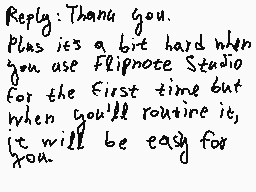 Reply: Thank you.
Plus it's a bit hard when
you use Flipnote Studio
for the first time but
when you'll routine it,
it will be easy for
you.